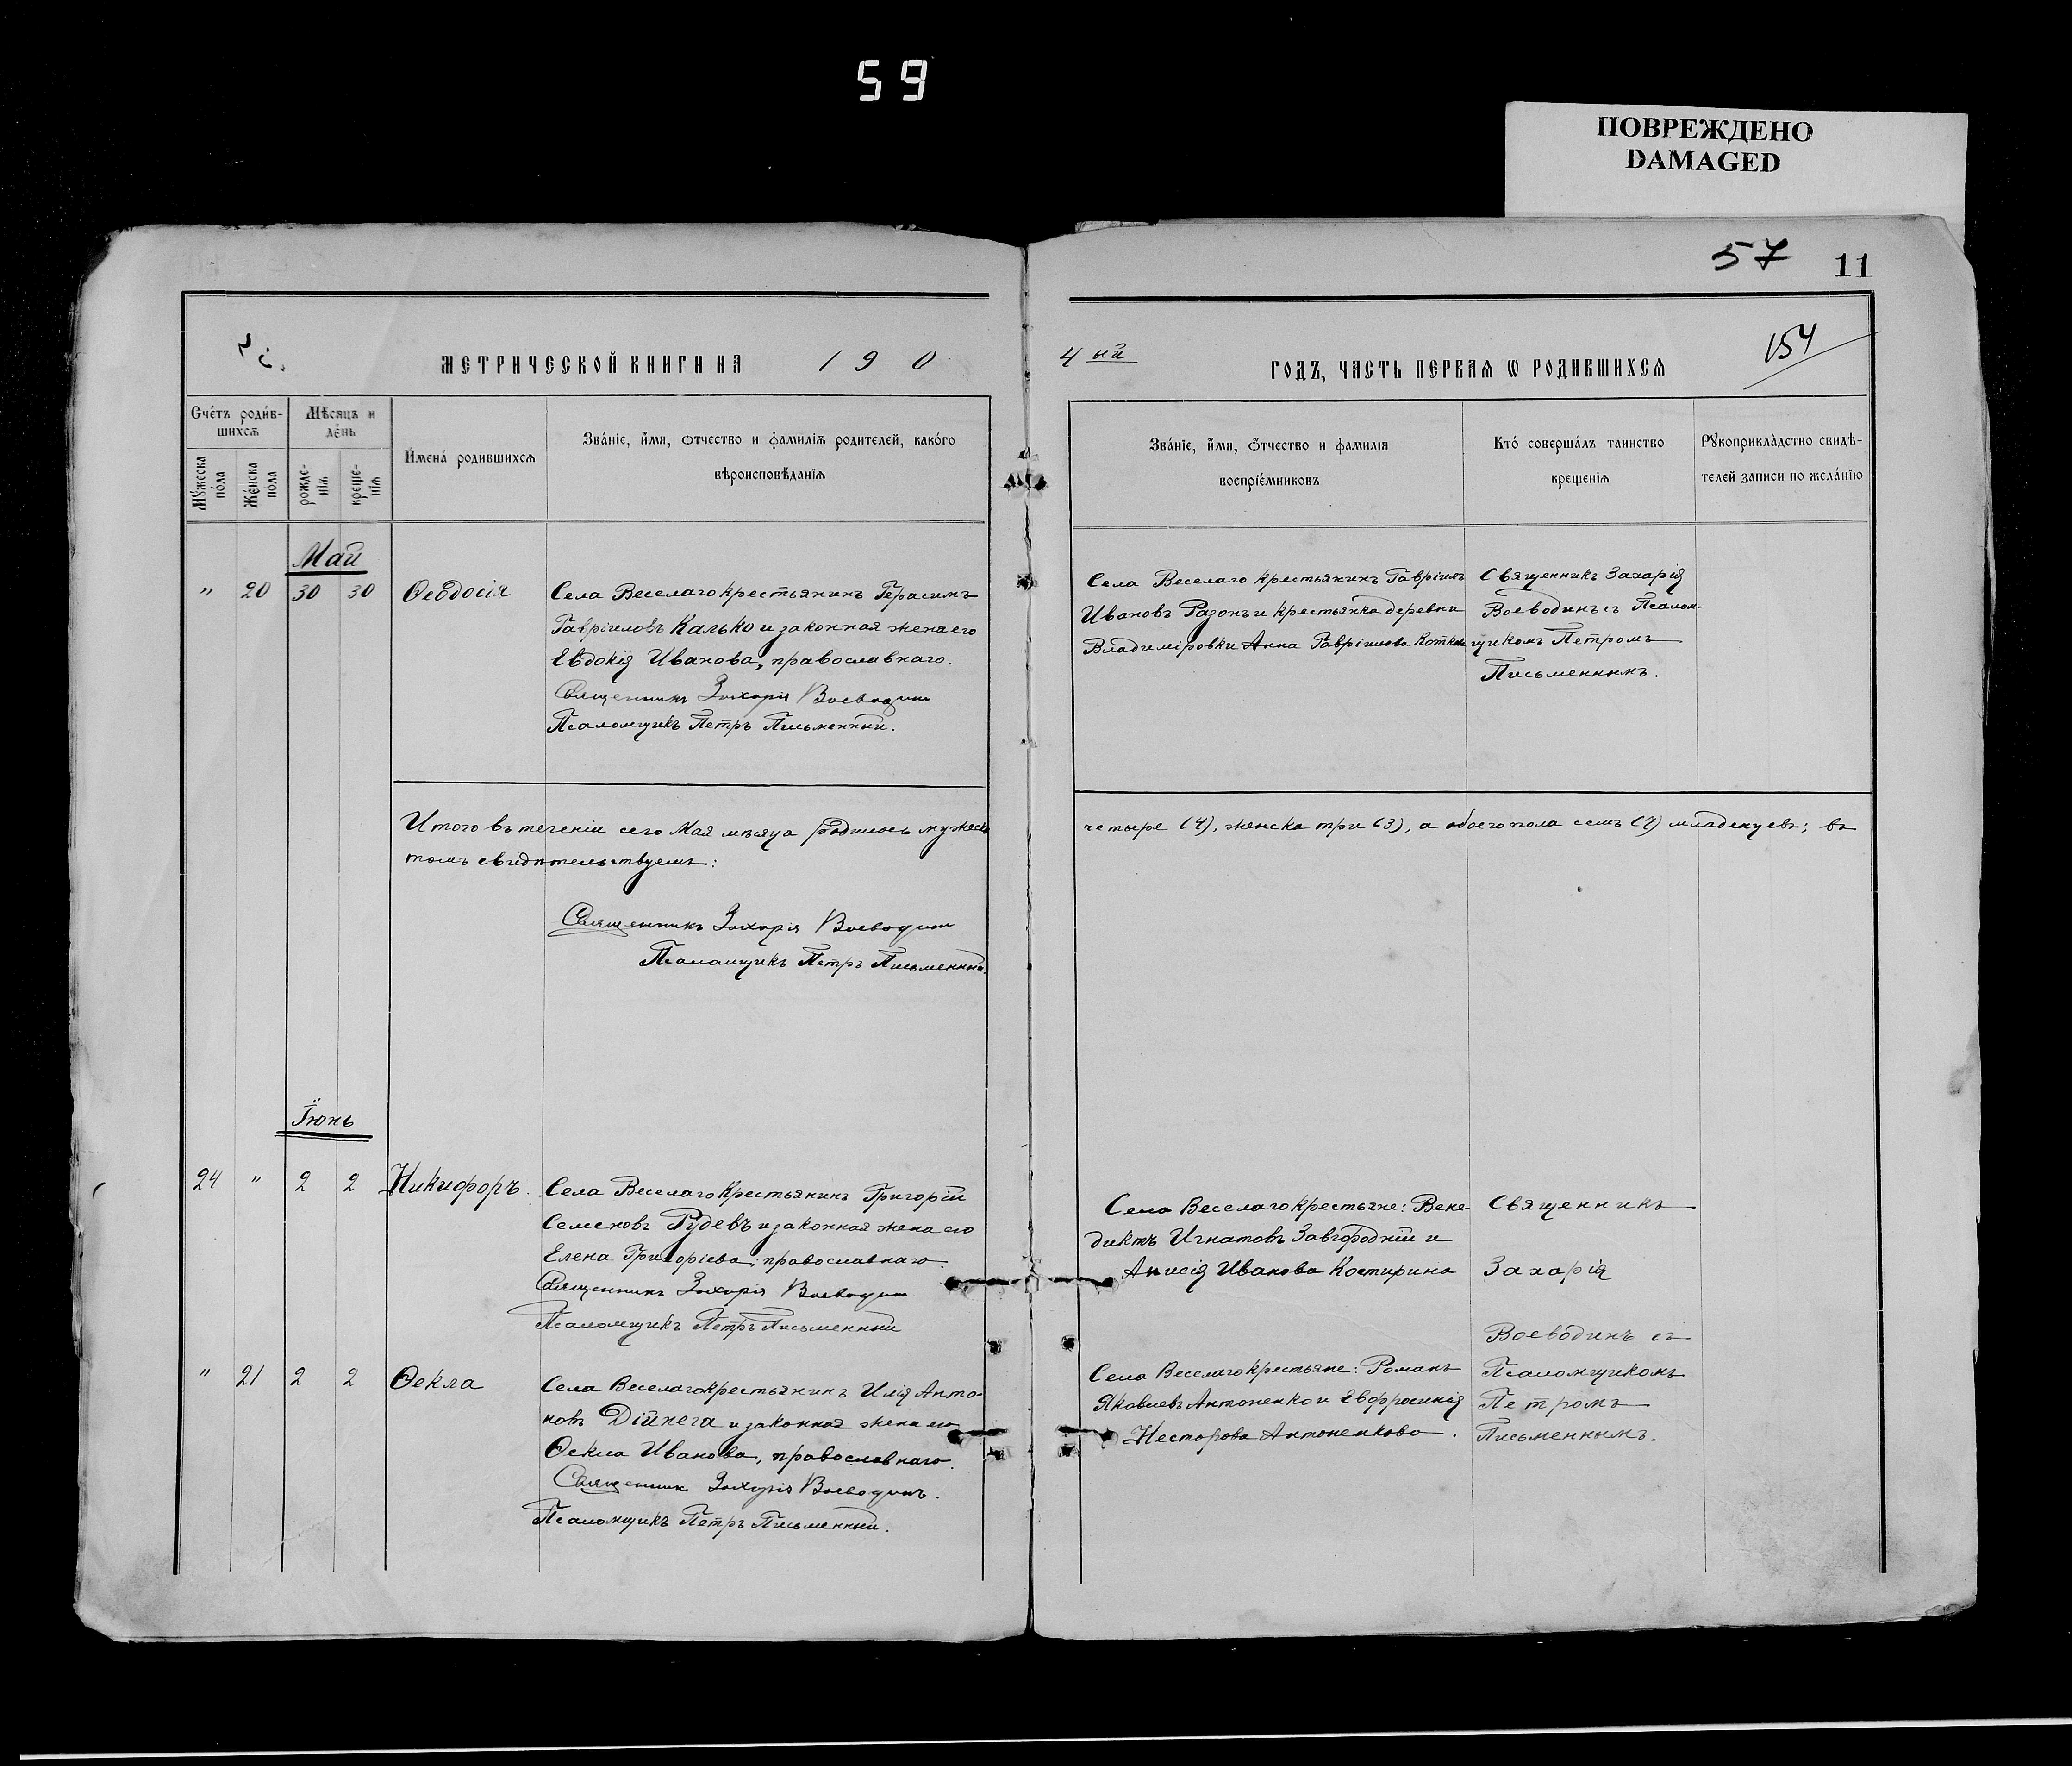 59
ПОВРЕЖДЕНО
DAMAGED
57 11
154
МЕТРИЧЕСКОЙ КНИГИ НА 190
4 ый ГОДЪ, ЧАСТЬ ПЕРВАѦ Ѡ РОДИВШИХСѦ
Счетъ родившихсѧ
Мѣсяцъ и день
Мужеска пола
Женска пола
рожденіѧ
крещеніѧ
Имена родившихсѧ
Званіе, имя, отчество и фамиліѧ родителей, какого
вѣроисповѣданіѧ
Званіе, имя, отчество и фамилія
воспріемниковъ
Кто совершалъ таинство
крещеніѧ
Рукоприкладство свидѣ-
телей записи по желанію
Май
" 20 30 30 Ѳеодосія
Села Веселаго крестьянинъ Герасимъ
Гавріиловъ Калько и законная жена его
Евдокія Иванова, православнаго.
Священникъ Захарія Воеводинъ
Псаломщикъ Петръ Письменный.
Села Веселаго крестьянинъ Гавріилъ
Ивановъ Разонъ и крестьянка деревни
Владиміровки Анна Гавріилова
Священникъ Захарія
Воеводинъ съ Псалом-
щикомъ Петромъ
Письменнымъ.
Итого въ теченіи сего Мая мѣсяца родилось мужеск
четыре (4), женска три (3), а обоего пола семь (7) младенцевъ; въ
томъ свидѣтельствуемъ:
Священникъ Захарія Воеводинъ
Псаломщикъ Петръ Письменный.
Іюнь
24 " 2 2 Никифоръ.
Села Веселаго крестьянинъ Григорій
Семеновъ Рудевъ и законная жена его
Елена Григоріева, православнаго.
Священникъ Захарія Воеводинъ
Псаломщикъ Петръ Письменный
Села Веселаго крестьяне: Вене-
диктъ Игнатовъ Завгородній и
Анисія Иванова Костирина
Священникъ
Захарія
Воеводинъ съ
Псаломщикомъ
Петромъ
Письменнымъ.
" 21 2 2 Ѳекла
Села Веселаго крестьянинъ Илія Анто-
новъ Дійнега и законная жена его
Ѳекла Иванова, православнаго.
Священникъ Захарія Воеводинъ.
Псаломщикъ Петръ Письменный.
Села Веселаго крестьяне: Романъ
Яковлевъ Антоненко и Евфросинія
Несторова Антоненкова.